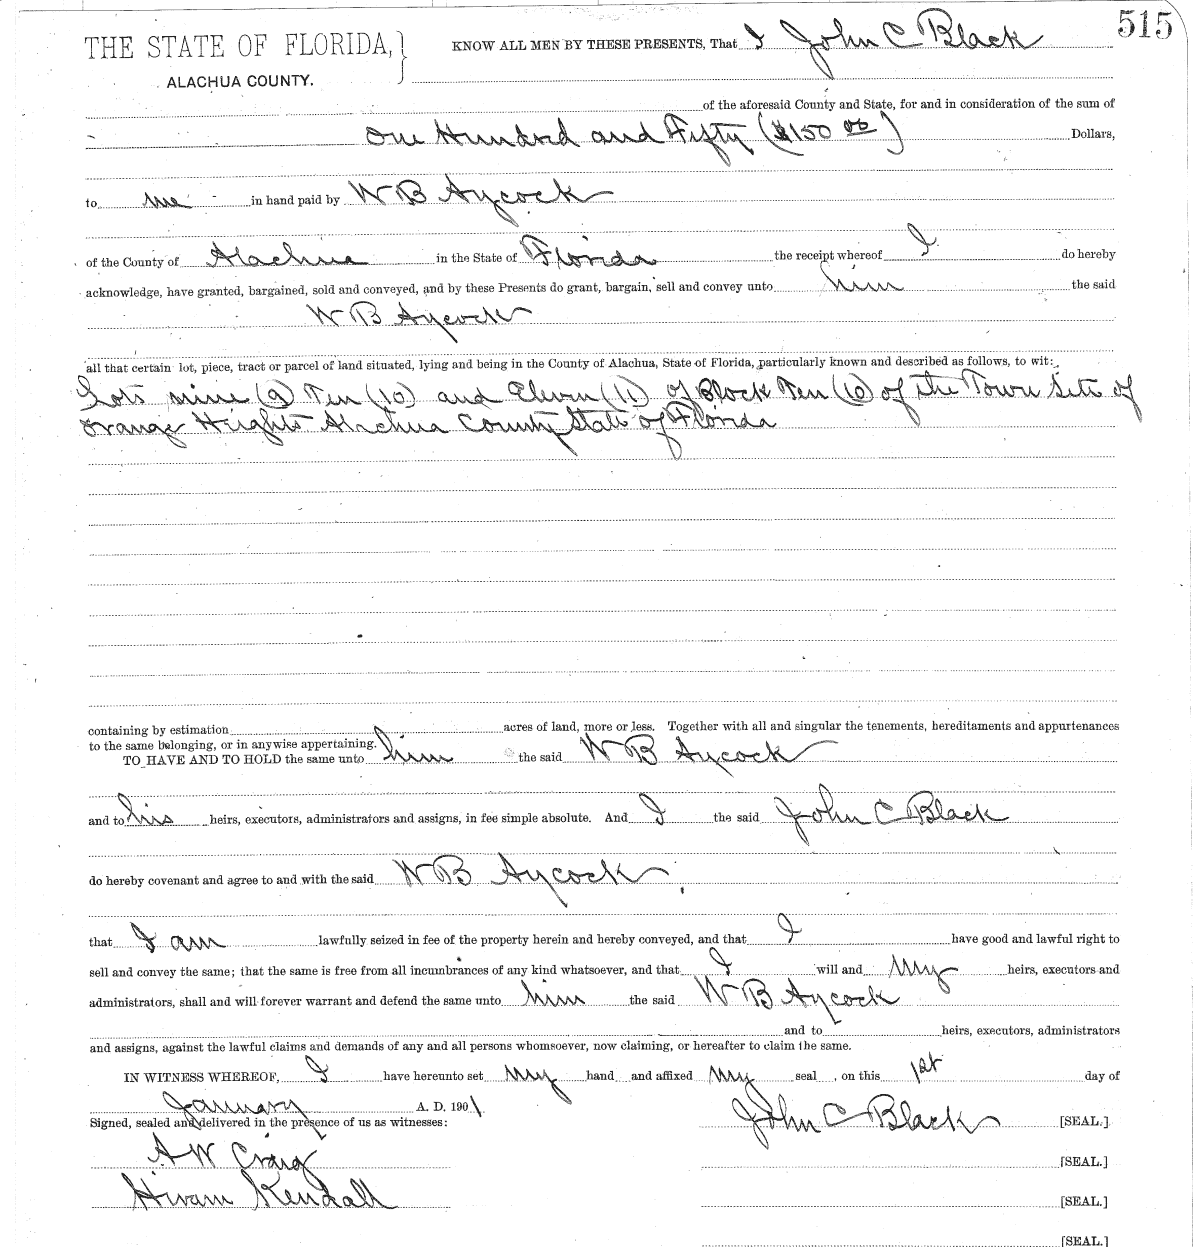 515
THE STATE OF FLORIDA,
ALACHUA COUNTY.
KNOW ALL MEN BY THESE PRESENTS, That I John C Black
of the aforesaid County and State, for and in consideration of the sum of
One Hundred and Fifty ($150 00) Dollars,
to me in hand paid by W B Aycock
of the County of Alachua in the State of Florida the receipt whereof I do hereby
acknowledge, have granted, bargained, sold and conveyed, and by these Presents do grant, bargain, sell and convey unto him the said
W B Aycock
all that certain lot, piece, tract or parcel of land situated, lying and being in the County of Alachua, State of Florida, particularly known and described as follows, to wit:
Lots nine (9) Ten (10) and Eleven (11) of Block Ten (10) of the Town Site of
Orange Heights Alachua County State of Florida
containing by estimation acres of land, more or less. Together with all and singular the tenements, hereditaments and appurtenances
to the same belonging, or in anywise appertaining.
TO HAVE AND TO HOLD the same unto him the said W B Aycock
and to his heirs, executors, administrators and assigns, in fee simple absolute. And I the said John C Black
do hereby covenant and agree to and with the said W B Aycock
that I am lawfully seized in fee of the property herein and hereby conveyed, and that I have good and lawful right to
sell and convey the same; that the same is free from all incumbrances of any kind whatsoever, and that I will and my heirs, executors and
administrators, shall and will forever warrant and defend the same unto him the said W B Aycock
and to heirs, executors, administrators
and assigns, against the lawful claims and demands of any and all persons whomsoever, now claiming, or hereafter to claim the same.
IN WITNESS WHEREOF, I have hereunto set my hand and affixed my seal, on this 1st day of
January A. D. 1901
Signed, sealed and delivered in the presence of us as witnesses:
John C Black [SEAL.]
A W Craig [SEAL.]
Hiram Kendall [SEAL.]
[SEAL.]